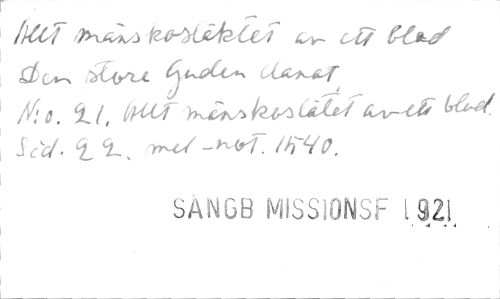 Allt mänskosläktet av ett blod
Den store Guden danat
N:o. 21. Allt mänskoslätet av ett blod.
Sid. 22. mel-not. 1540.
SÅNGB MISSIONSF 1921